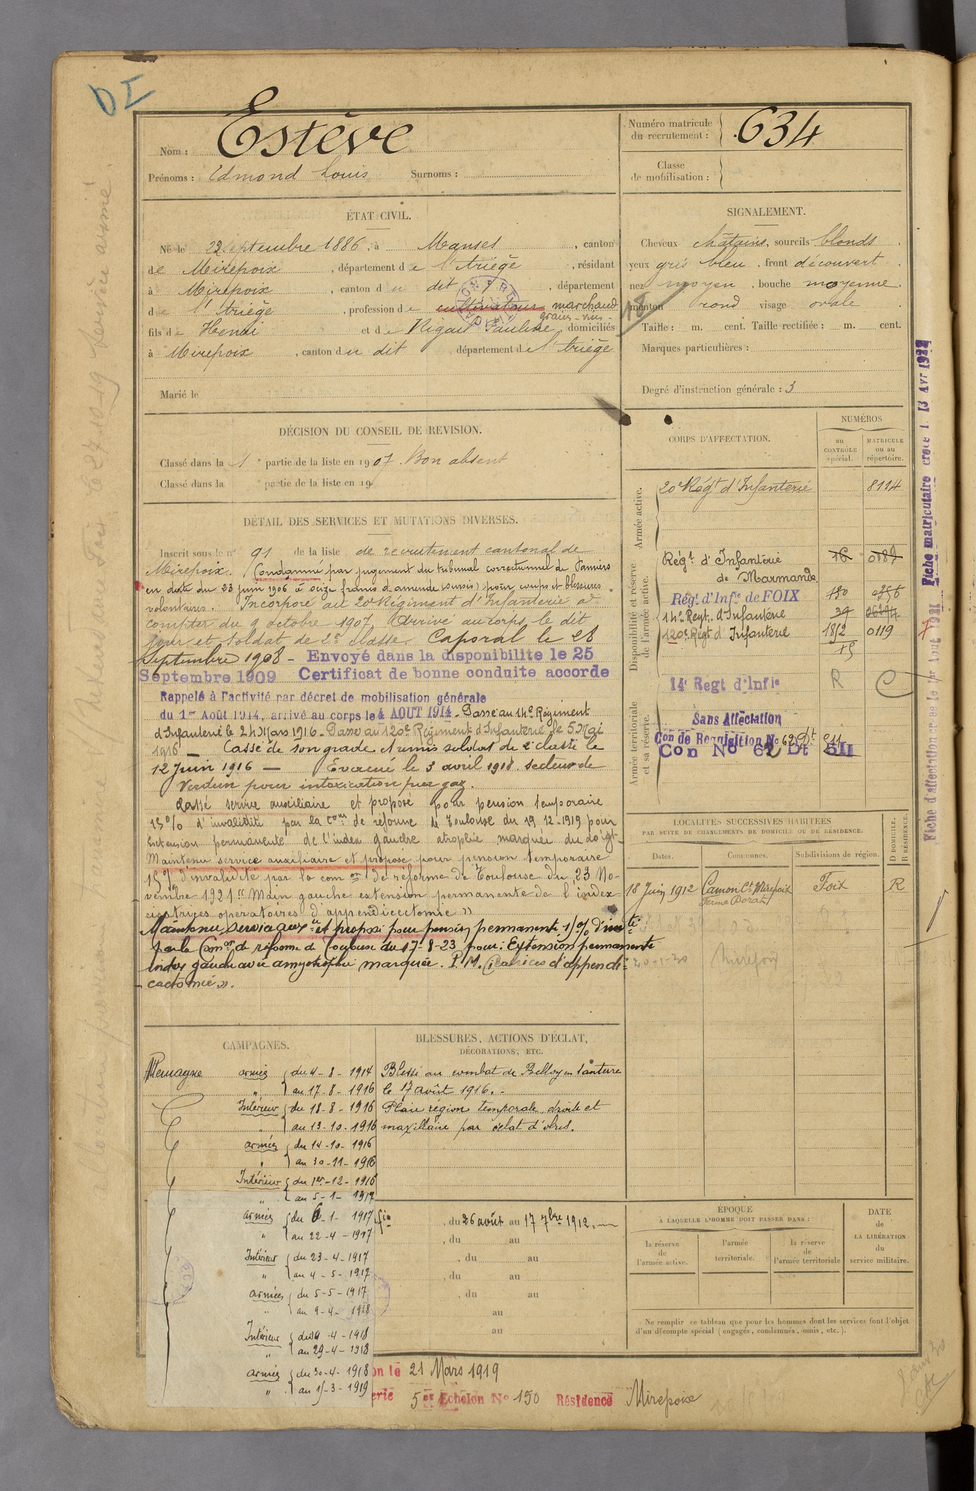 DI
Nom : Estève
Prénoms : Edmond Louis Surnoms :
Numéro matricule du recrutement : 634
Classe de mobilisation :
ÉTAT CIVIL.
Né le 23 septembre 1886, à Manses, canton
de Mirepoix, département de l'Ariège, résidant
à Mirepoix, canton du dit, département
de l'Ariège, profession de cultivateur marchand
grains
fils de Henri et de Rigail Pauline, domiciliés
à Mirepoix, canton du dit, département de l'Ariège
Marié le
SIGNALEMENT.
Cheveux châtains, sourcils blonds
yeux gris bleu, front découvert
nez moyen, bouche moyenne
menton rond visage ovale
Taille : m. cent. Taille rectifiée : m. cent.
Marques particulières :
Degré d'instruction générale : 3
DÉCISION DU CONSEIL DE REVISION.
Classé dans la 1e partie de la liste en 1907. Bon absent
Classé dans la e partie de la liste en 19
DÉTAIL DES SERVICES ET MUTATIONS DIVERSES.
Inscrit sous le n° 91 de la liste de recrutement cantonal de
Mirepoix. Condamné par jugement du tribunal correctionnel de Pamiers
en date du 23 juin 1906 à seize francs d'amende (sursis) pour coups et blessures
volontaires. Incorporé au 20e Régiment d'Infanterie à
compter du 9 octobre 1907. Arrivé au corps le dit
jour et soldat de 2e classe. Caporal le 28
Septembre 1908 - Envoyé dans la disponibilite le 25
Septembre 1909 Certificat de bonne conduite accorde
Rappelé à l'activité par décret de mobilisation générale
du 1er Août 1914, arrivé au corps le 4 AOUT 1914 - Passé au 14e Régiment
d'Infanterie le 24 Mars 1916 - Passé au 120e Régiment d'Infanterie le 5 Mai
1916 - Cassé de son grade et remis soldat de 2e classe le
12 Juin 1916 - Evacué le 3 avril 1918 secteur de
Verdun pour intoxication par gaz.
Classé service auxiliaire et proposé pour pension temporaire
15 % d'invalidité par la Com on de réforme de Toulouse du 19-12-1919 pour
Extension permanente de l'index gauche atrophie marquée du doigt
Maintenu service auxiliaire et proposé pour pension temporaire
15 % d'invalidité par la com on de réforme de Toulouse du 23 No-
vembre 1921 "Main gauche extension permanente de l'index
cicatrices opératoires d'appendicectomie"
Maintenu service auxre et proposé pour pension permanente 15 % d'invté
par la Com on de réforme de Toulouse du 17-8-23 pour: Extension permanente
index gauche avec amyotrophie marquée. P.M. Cicatrices d'appendi-
cectomie".
CORPS D'AFFECTATION.
NUMÉROS
AU CONTRÔLE spécial.
MATRICULE OU AU répertoire.
Armée active.
20e Régt d'Infanterie 8114
Disponibilité et réserve de l'armée active.
Régt d'Infanterie
de Marmande
Régt d'Infie de FOIX
14e Regt. d'Infanterie
120e Régt d'Infanterie 0119
Armée territoriale et sa réserve.
14e Regt d'Infie R C
Sans Affectation
Con de Requisition No 62 Dt 511
Con No 62 Dt 511
LOCALITÉS SUCCESSIVES HABITÉES
PAR SUITE DE CHANGEMENTS DE DOMICILE OU DE RÉSIDENCE.
Dates. Communes. Subdivisions de région. D DOMICILE. R RÉSIDENCE.
18 Juin 1912 Camon Con Mirepoix Foix R
20-1-30 Mirepoix
CAMPAGNES.
Allemagne armées du 4-8-1914
" au 17-8-1916
Intérieur du 18-8-1916
" au 13-10-1916
armées du 14-10-1916
" au 30-11-1916
Intérieur du 1er-12-1916
" au 5-1-1917
armées du 6-1-1917
" au 22-4-1917
Intérieur du 23-4-1917
" au 4-5-1917
armées du 5-5-1917
" au 9-4-1918
Intérieur du 10-4-1918
" au 29-4-1918
armées du 30-4-1918
" au 15-3-1919
BLESSURES, ACTIONS D'ÉCLAT,
DÉCORATIONS, ETC.
Blessé au combat de Belloy en Santerre
le 17 août 1916. -
Plaie région temporale droite et
maxillaire par éclat d'obus.
, du 26 août au 17 7bre 1912.
, du au
, du au
, du au
, du au
au
au
ÉPOQUE
À LAQUELLE L'HOMME DOIT PASSER DANS :
la réserve de l'armée active.
l'armée territoriale.
la réserve de l'armée territoriale
DATE de LA LIBÉRATION du service militaire.
Ne remplir ce tableau que pour les hommes dont les services font l'objet
d'un décompte spécial (engagés, condamnés, omis, etc.).
on le 21 Mars 1919
5e Echelon No 150 Résidence Mirepoix
Fiche matriculaire créée le 13 Avr 1922
Fiche d'affectation créée le 1er Aout 1931